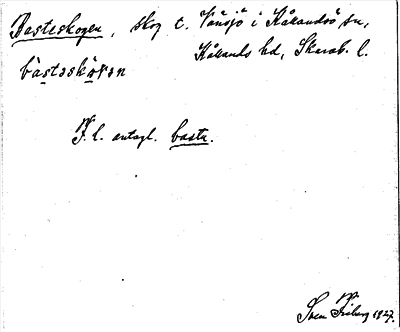 Basteskogen, skog t. Vänsjö i Kållandsö sn,
Kållands hd, Skarab. l.
bàstəskò̤gən
F. l. antagl. bastu.
Sven Friberg 1927.